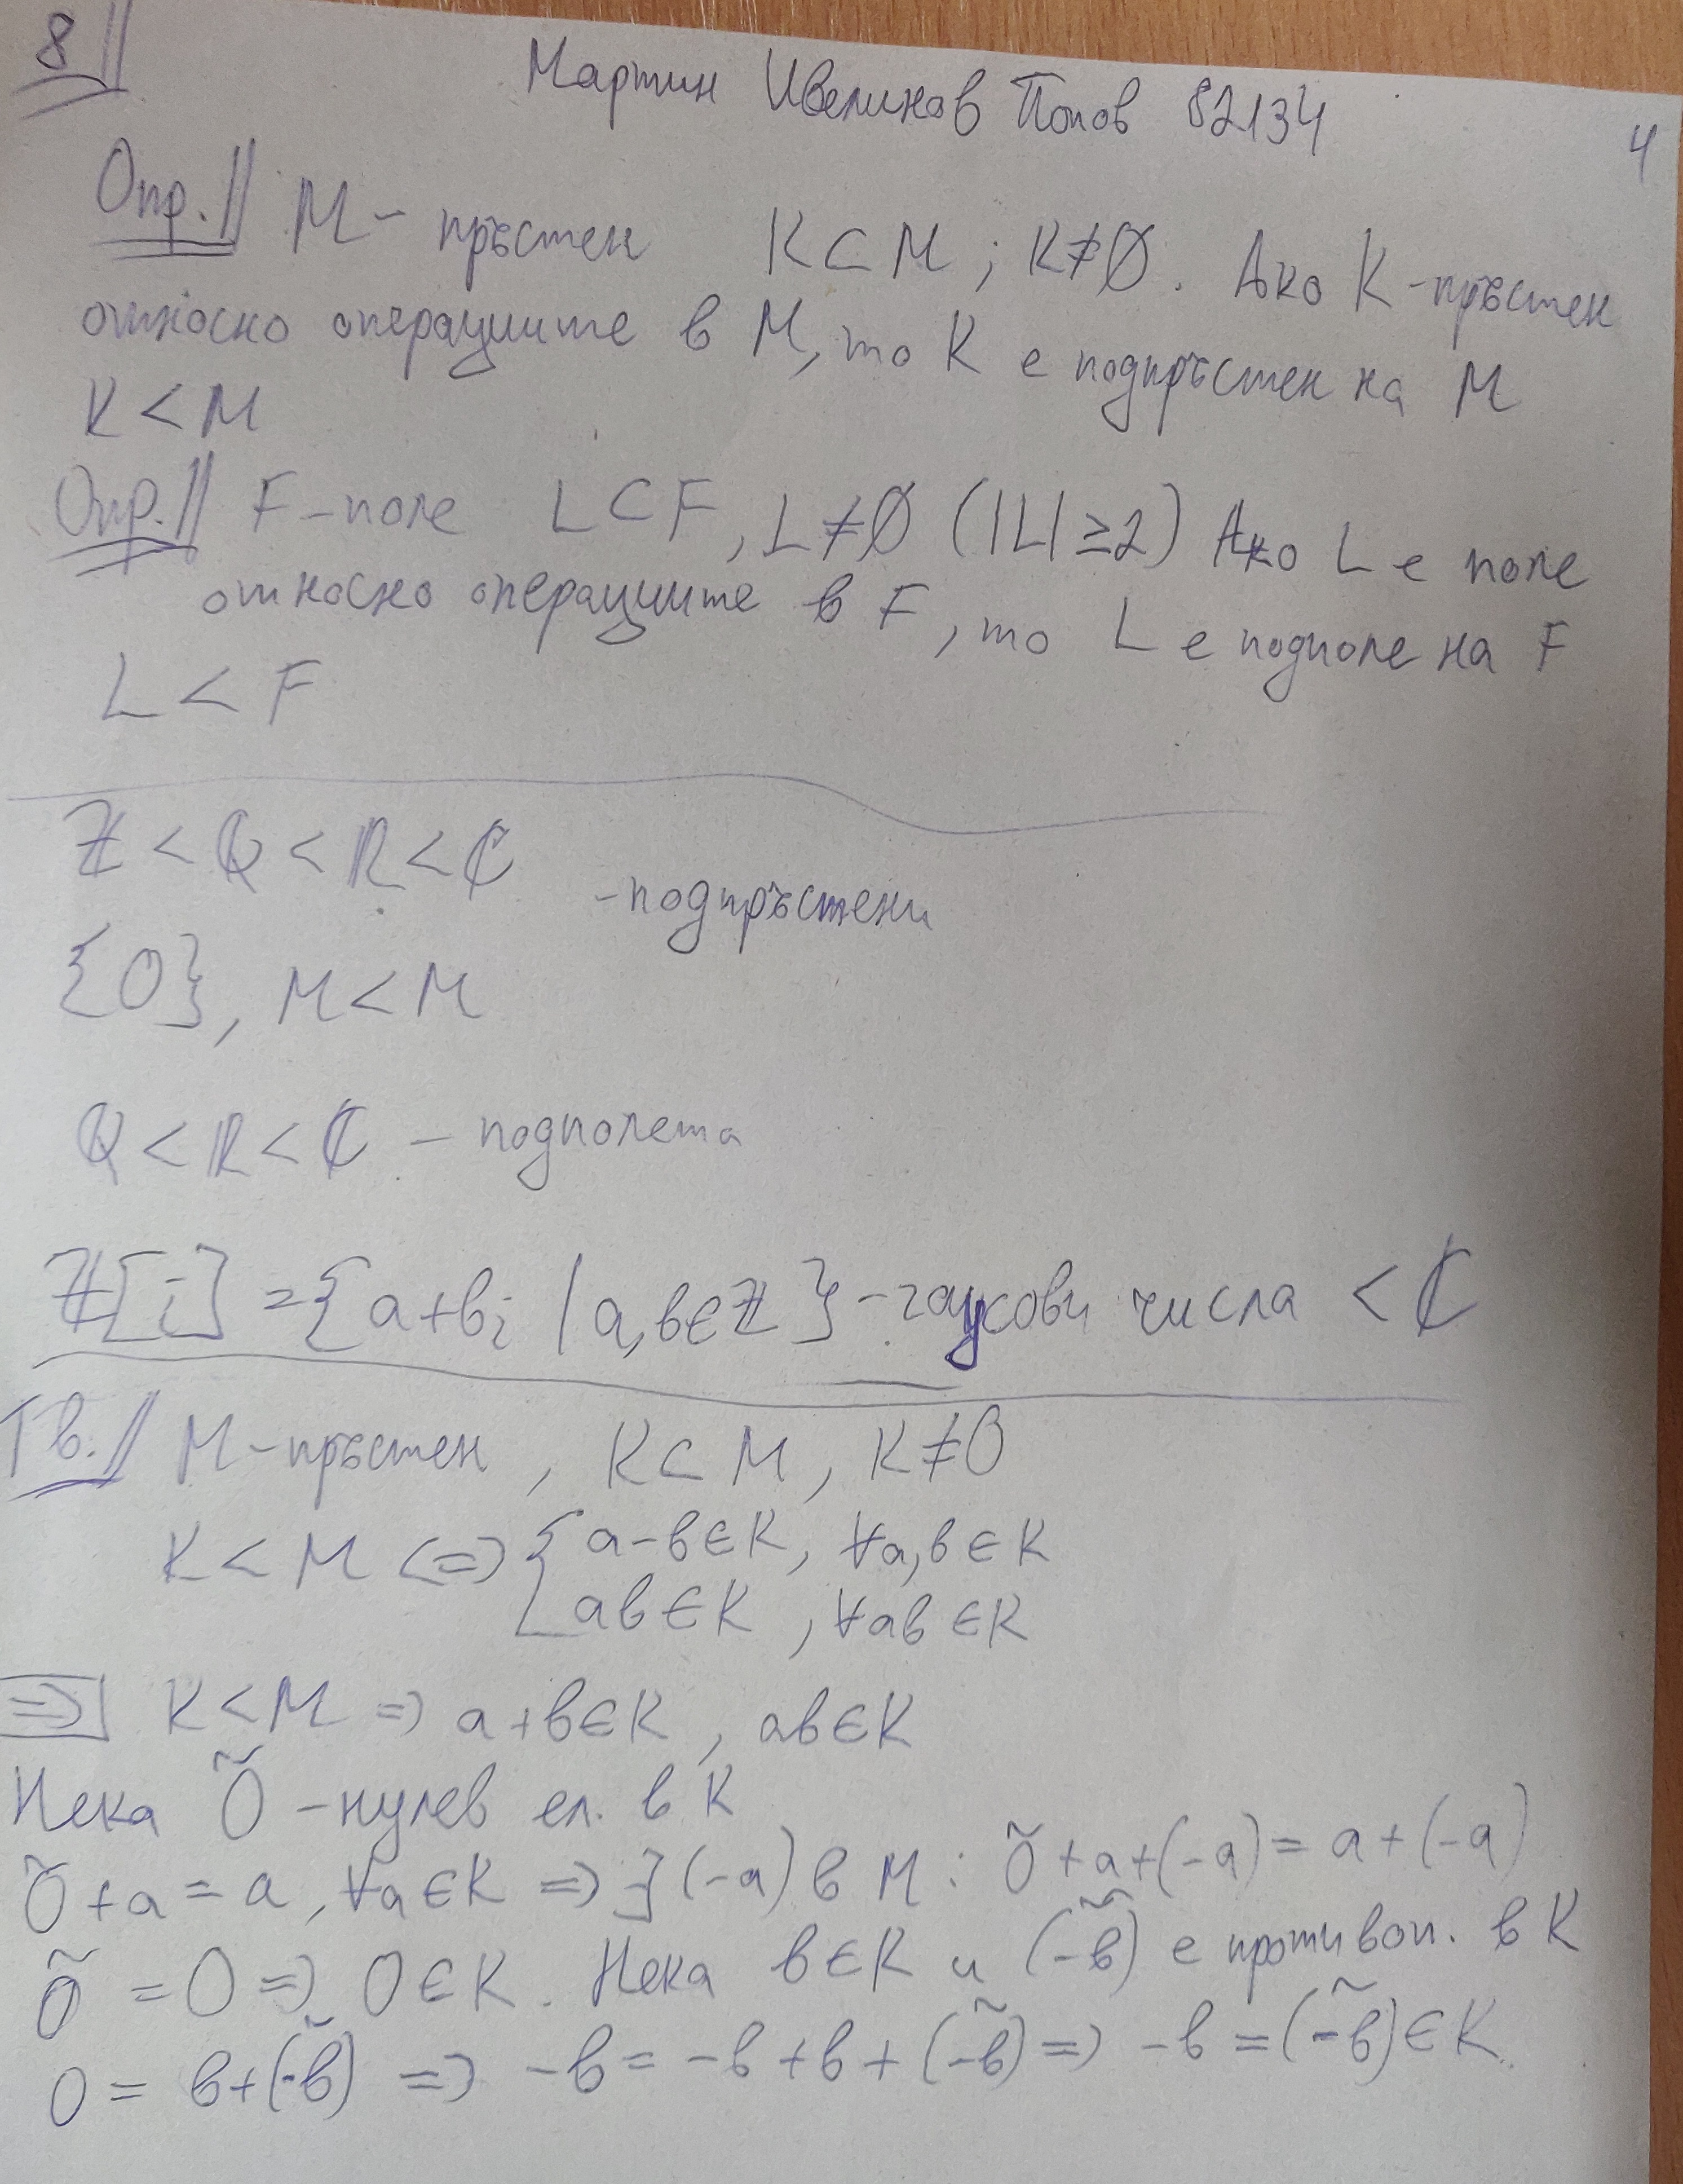 8||
Мартин Ивелинов Попов 82134
4
Опр.|| M - пръстен K ⊂ M ; K ≠ ∅. Ако K - пръстен
относно операциите в M, то K е подпръстен на M
K < M
Опр.|| F - поле L ⊂ F, L ≠ ∅ (|L| ≥ 2) Ако L е поле
относно операциите в F, то L е подполе на F
L < F
ℤ < ℚ < ℝ < ℂ
- подпръстени
{0}, M < M
ℚ < ℝ < ℂ - подполета
ℤ[i] = {a+bi | a,b ∈ ℤ} - гаусови числа < ℂ
Тв.|| M - пръстен, K ⊂ M, K ≠ 0
K < M <=> { a-b ∈ K, ∀a,b ∈ K
ab ∈ K, ∀ab ∈ K
=> K < M => a+b ∈ K, ab ∈ K
Нека 0̃ - нулев ел. в K
0̃ + a = a, ∀a ∈ K => ∃ (-a) в M : 0̃ + a + (-a) = a + (-a)
0̃ = 0 => 0 ∈ K. Нека b ∈ K и (-̃b) е противоп. в K
0 = b + (-̃b) => -b = -b + b + (-̃b) => -b = (-̃b) ∈ K.